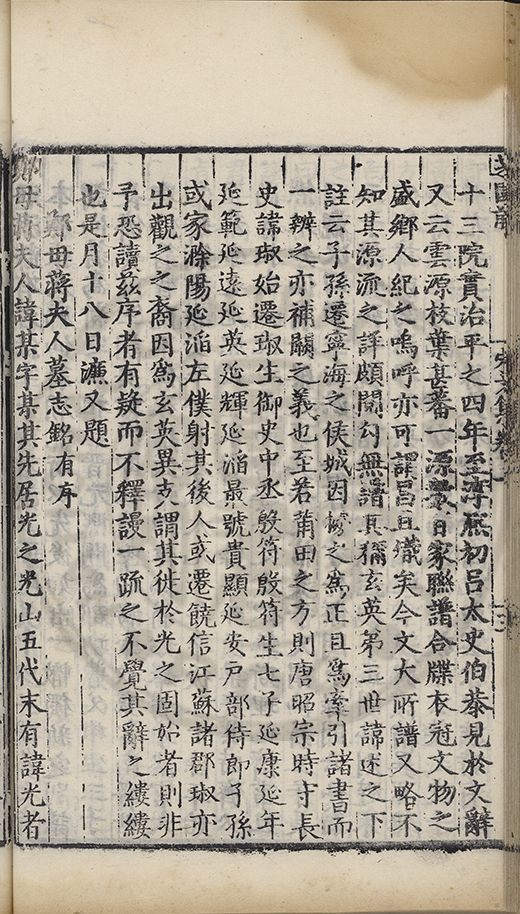 十三院實治平之四年至淳熈初吕太史伯恭見於文辭
又云雲源枝葉甚蕃一源數百家聯譜合牒衣冠文物之
盛鄉人紀之嗚呼亦可謂昌且熾矣今文大所譜又略不
知其源流之詳頗閱勾無譜其獮玄英第三世諱述之下
註云子孫遷寧海之侯城因據之為正且為牽引諸書而
一辨之亦補闕之義也至若莆田之方則唐昭宗時守長
史諱琡始遷琡生御史中丞殷符殷符生七子延康延年
延範延遠延英延輝延滔最號貴顯延安户部侍郎子孫
或家滁陽延滔左僕射其後人或遷饒信江蘇諸郡琡亦
出觀之之裔因為玄英異支謂其徙於光之固始者則非
予恐讀兹序者有疑而不釋謾一疏之不覺其辭之縷縷
也是月十八日濂又題
鄭母蔣夫人墓志銘有序
鄭母蔣夫人諱某字某其先居光之光山五代末有諱光者